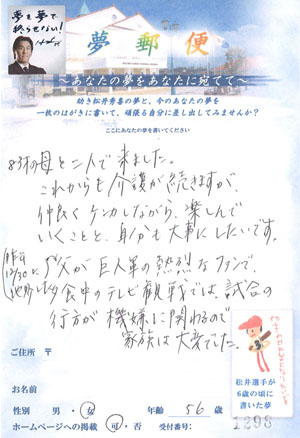 夢を夢で
終らせない!
夢郵便
～あなたの夢をあなたに宛てて～
幼き松井秀喜の夢と、今のあなたの夢を
一枚のはがきに書いて、頑張る自分に差し出してみませんか?
ここにあなたの夢を書いてください
83才の母と二人で来ました。
これからも介護が続きますが、
仲良くケンカしながら、楽しんで
いくことと、自分も大事にしたいです。
昨年
12/30に
父が巨人軍の熱烈なファンで、
夕食中のテレビ観戦では、試合の
行方が機嫌に関わるので
家族は大変でした。
ご住所 〒
お名前
性別 男・女 年齢 56 歳
ホームページへの掲載 可・否 受付番号: 1298
松井選手が
6歳の頃に
書いた夢